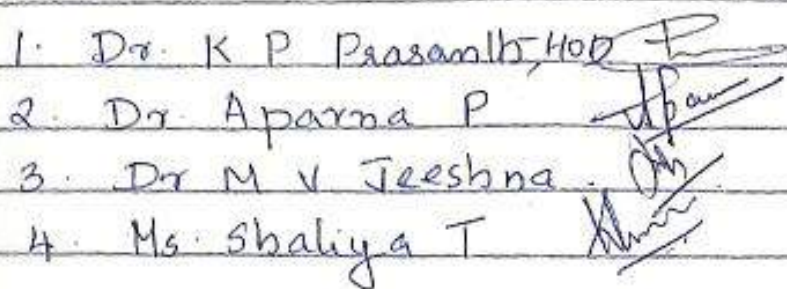 1. Dr. K P Prasanth, HOD
2. Dr. Aparna P
3. Dr M V Jeeshna.
4. Ms. Shaliya T